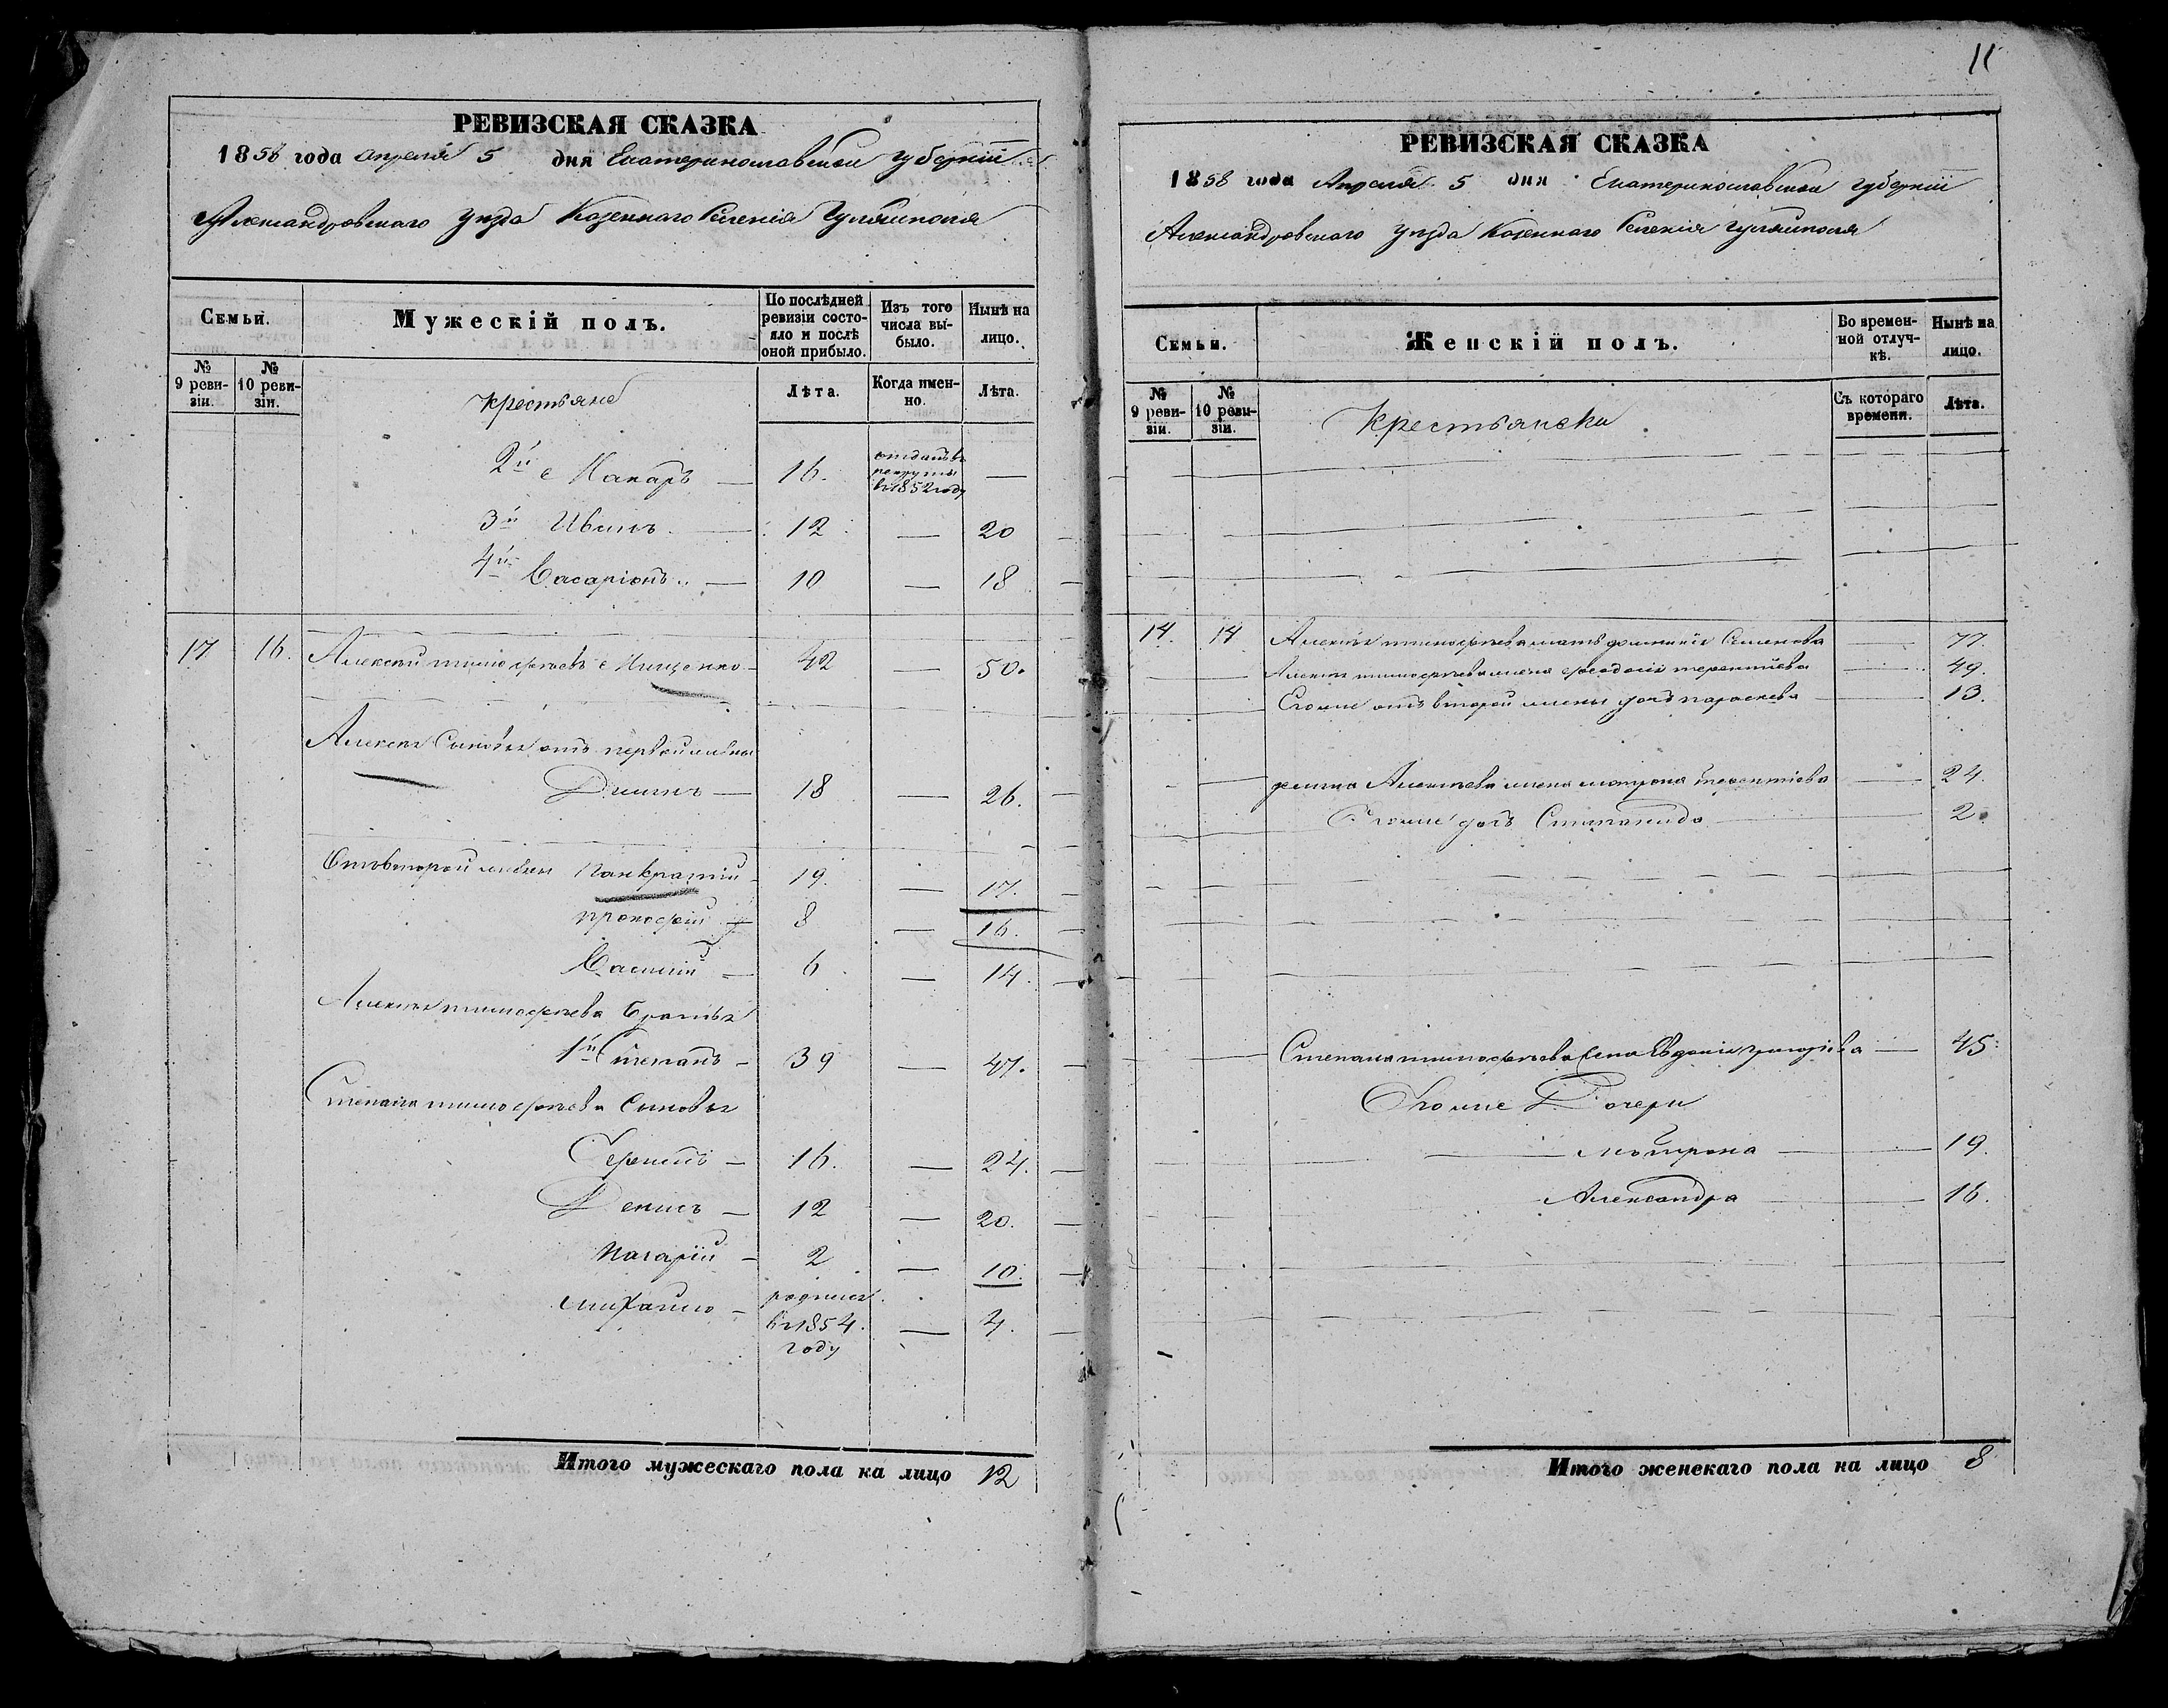 РЕВИЗСКАЯ СКАЗКА
1858 года апреля 5 дня Екатеринославской губерніи
Александровского уезда Казенного Селенія Гуляйполя
Семьи.
Мужескій полъ.
По послѣдней ревизіи состояло и послѣ оной прибыло.
Изъ того числа выбыло.
Нынѣ на лицо.
№ 9 ревизіи.
№ 10 ревизіи.
крестьяне
Лѣта.
Когда именно.
Лѣта.
2й Макаръ — 16. отданъ в рекруты в 1852 году —
3й Иванъ. — 12 — 20
4й Васаріонъ. — 10 — 18
17 16. Алексей тимофеевъ Нищенко 42 — 50.
Алексея Сыновья отъ первой жены
18 — 26.
Отъ второй жены Панкратий 19. — 17.
прокофий — 8 — 16.
Василий — 6 — 14.
Алексея тимофеева братья
1й Степанъ — 39 — 47.
Степана тимофеева Сыновья
16. — 24.
Денисъ — 12 — 20.
2 — 10.
михайло — родился в 1854. году — 4.
Итого мужескаго пола на лицо 12
11
РЕВИЗСКАЯ СКАЗКА
1858 года Апреля 5 дня Екатеринославской губерніи
Александровского уезда Казенного Селенія Гуляйполя
Семьи.
Женскій полъ.
Во временной отлучкѣ.
Нынѣ на лицо.
№ 9 ревизіи.
№ 10 ревизіи.
Крестьянски
Съ котораго времени.
Лѣта.
14. 14 Алексея тимофеева мать Семенова 77.
Алексея тимофеева жена феодосія терентиева — 49.
Егоже отъ второй жены дочь параскева — 13.
Алексеева жена матрона терентиева — 24.
Егоже дочь Степанида 2.
Степана тимофеева жена Евдокія григориева — 45.
Егоже Дочери
мотрона — 19.
Александра — 16.
Итого женскаго пола на лицо 8